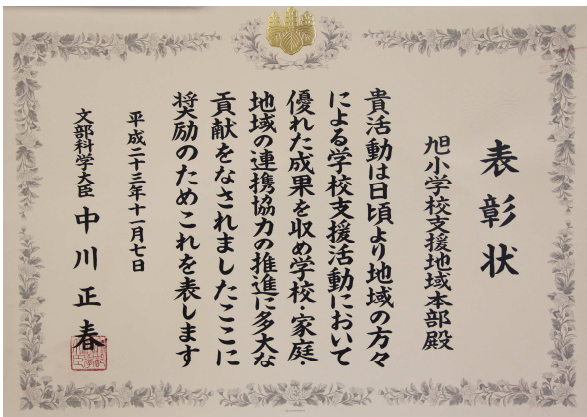 表彰状
旭小学校支援地域本部殿
貴活動は日頃より地域の方々
による学校支援活動において
優れた成果を収め学校・家庭・
地域の連携協力の推進に多大な
貢献をなされましたここに
奨励のためこれを表します
平成二十三年十一月七日
文部科学大臣 中川正春